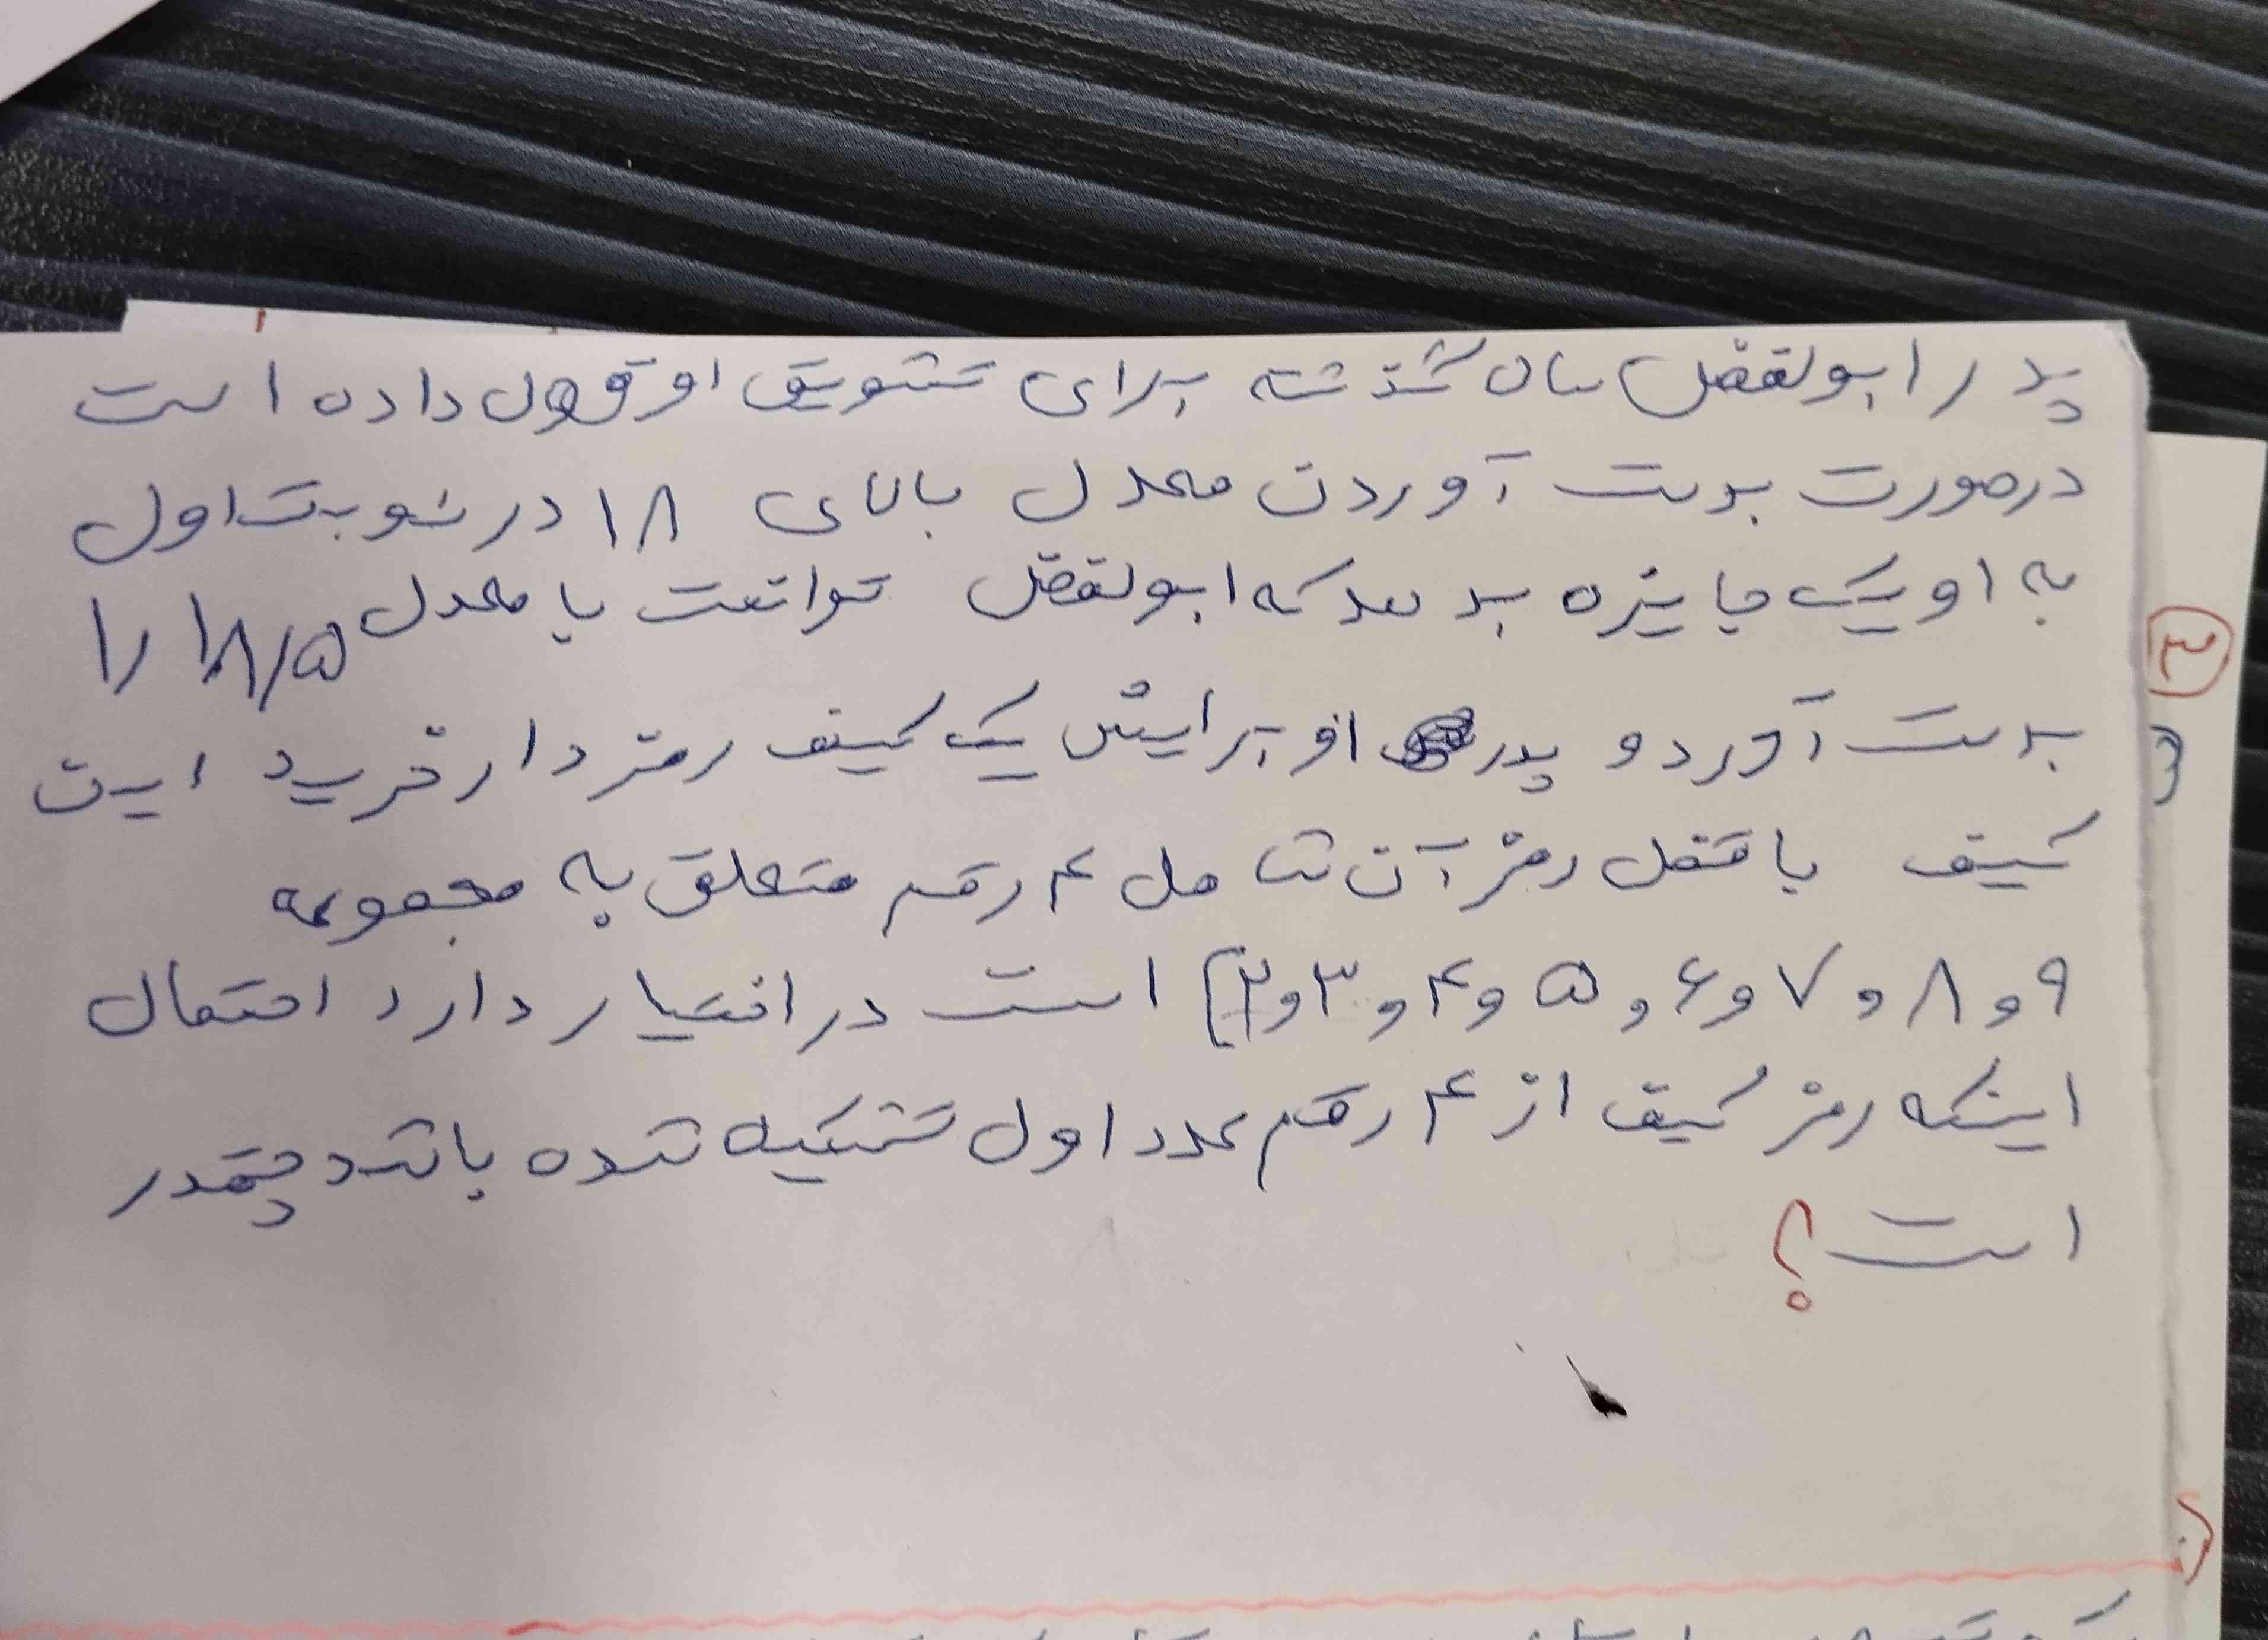 پدر ابولفضل سال گذشته برای تشویق او قول داده است
درصورت بدست آوردن معدل بالای ۱۸ در نوبت اول
به او یک جایزه بدهد که ابولفضل توانست با معدل ۱۸/۵ را
بدست آورد و پدر او برایش یک کیف رمز دار خرید این
کیف با قفل رمز آن شامل ۴ رقم متعلق به مجموعه
۹ و ۸ و ۷ و ۶ و ۵ و ۴ و ۳ و ۲} است در اختیار دارد احتمال
اینکه رمز کیف از ۴ رقم عدد اول تشکیه شده باشد چقدر
است؟
۳